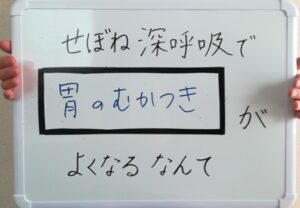 せぼね深呼吸で
胃のむかつき
が
よくなるなんて